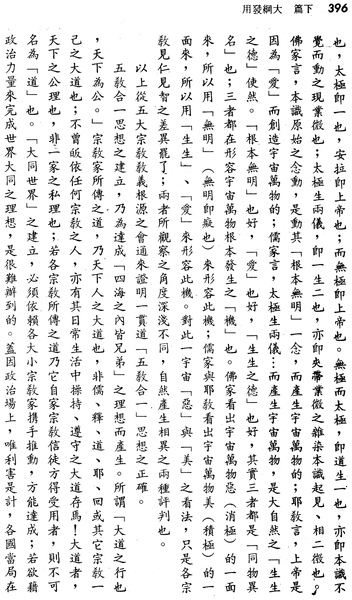 396　下篇　大綱發用
也，太極即一也，安拉即上帝也；而無極即上帝也。無極而太極，即道生一也，亦即本識不
覺而動之現業徵也；太極生兩儀，即一生二也，亦即夾帶業徵之雜染本識起見、相二徵也。
佛家言，本識原始之念動，是動其「根本無明」一念，而產生宇宙萬物的；耶教言，上帝是
因為「愛」而創造宇宙萬物的；儒家言，太極生兩儀…而產生宇宙萬物，是大自然之「生生
之德」使然。「根本無明」也好，「愛」也好，「生生之德」也好，其實三者都是「同物異
名」也；三者都在形容宇宙萬物根本發生之「機」也。佛家看出宇宙萬物惡（消極）的一面
來，所以用「無明」（無明即癡也）來形容此機；儒家與耶教看出宇宙萬物美（積極）的一
面來，所以用「生生」、「愛」來形容此機。對此一宇宙「惡」與「美」之看法，只是各宗
教見仁見智之差異罷了；兩者所觀察之角度深淺不同，自然產生相異之兩種評判也。
以上從五大宗教教義根源之會通來證明一貫道「五教合一」思想之正確。
五教合一思想之建立，乃為達成「四海之內皆兄弟」之理想而產生。所謂「大道之行也
，天下為公。」宗教家所傳之道，乃天下人之大道也，非儒、釋、道、耶、回或其它宗教一
己之大道也；不曾皈依任何宗教之人，亦有其日常生活中操持、遵守之大道存焉！大道者，
天下之公理也，非一家之私理也；若各宗教所傳之道乃它自家宗教信徒方得受用者，則不可
名為「道」也。「大同世界」之建立，必須依賴各大小宗教家携手推動，方能達成；若欲藉
政治力量來完成世界大同之理想，是很難辦到的。蓋因政治場上，唯利害是計，各國當局在